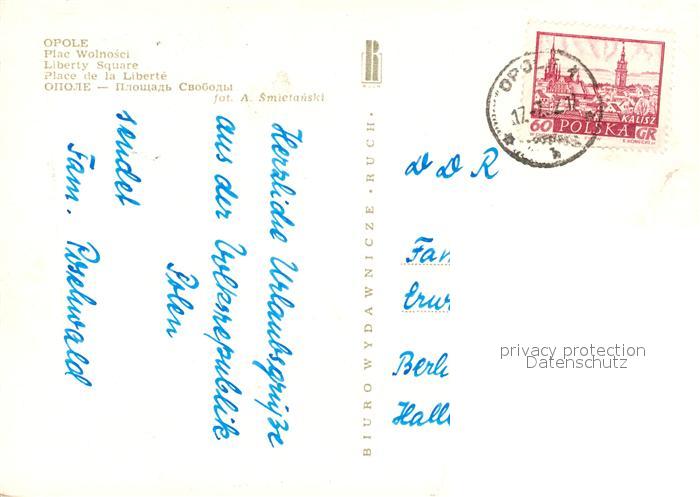 OPOLE
Plac Wolności
Liberty Square
Place de la Liberté
ОПОЛЕ — Площадь Свободы
fot. A. Śmietański
Herzliche Urlaubsgrüße
aus der Volksrepublik
Polen
sendet
Fam. Poschwald
BIURO WYDAWNICZE • RUCH •
OPOLE 1
KALISZ
60 POLSKA GR
DDR
Fam
Berl
Hall
privacy protection
Datenschutz